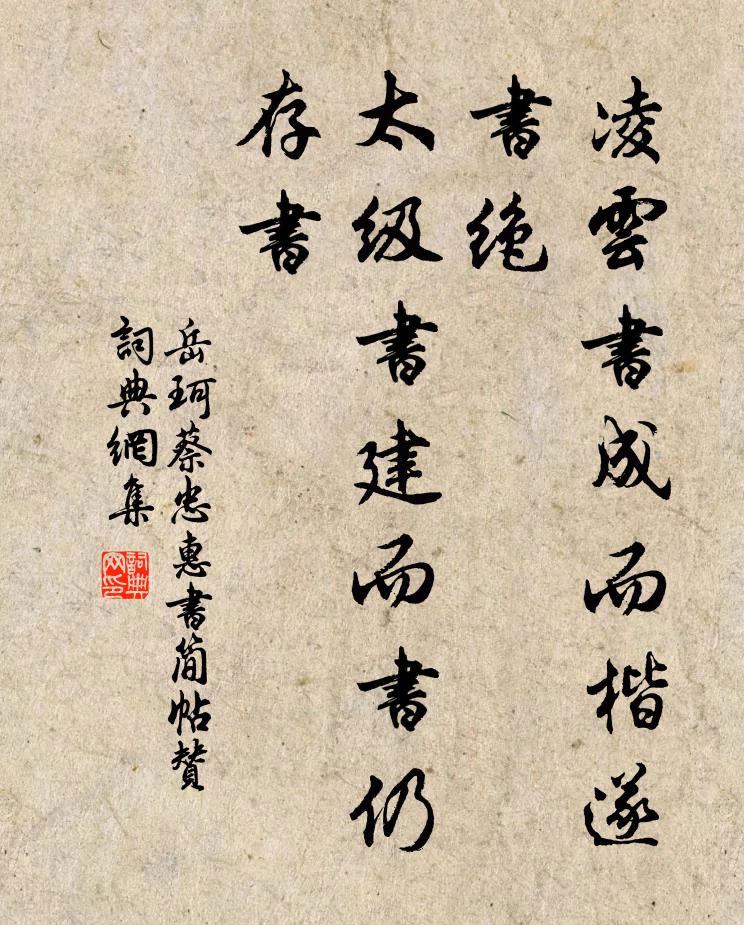 凌雲書成而楷遂
書絶
太级書建而書仍
存書
岳珂蔡忠惠書简帖贊
詞典網集
詞典网印